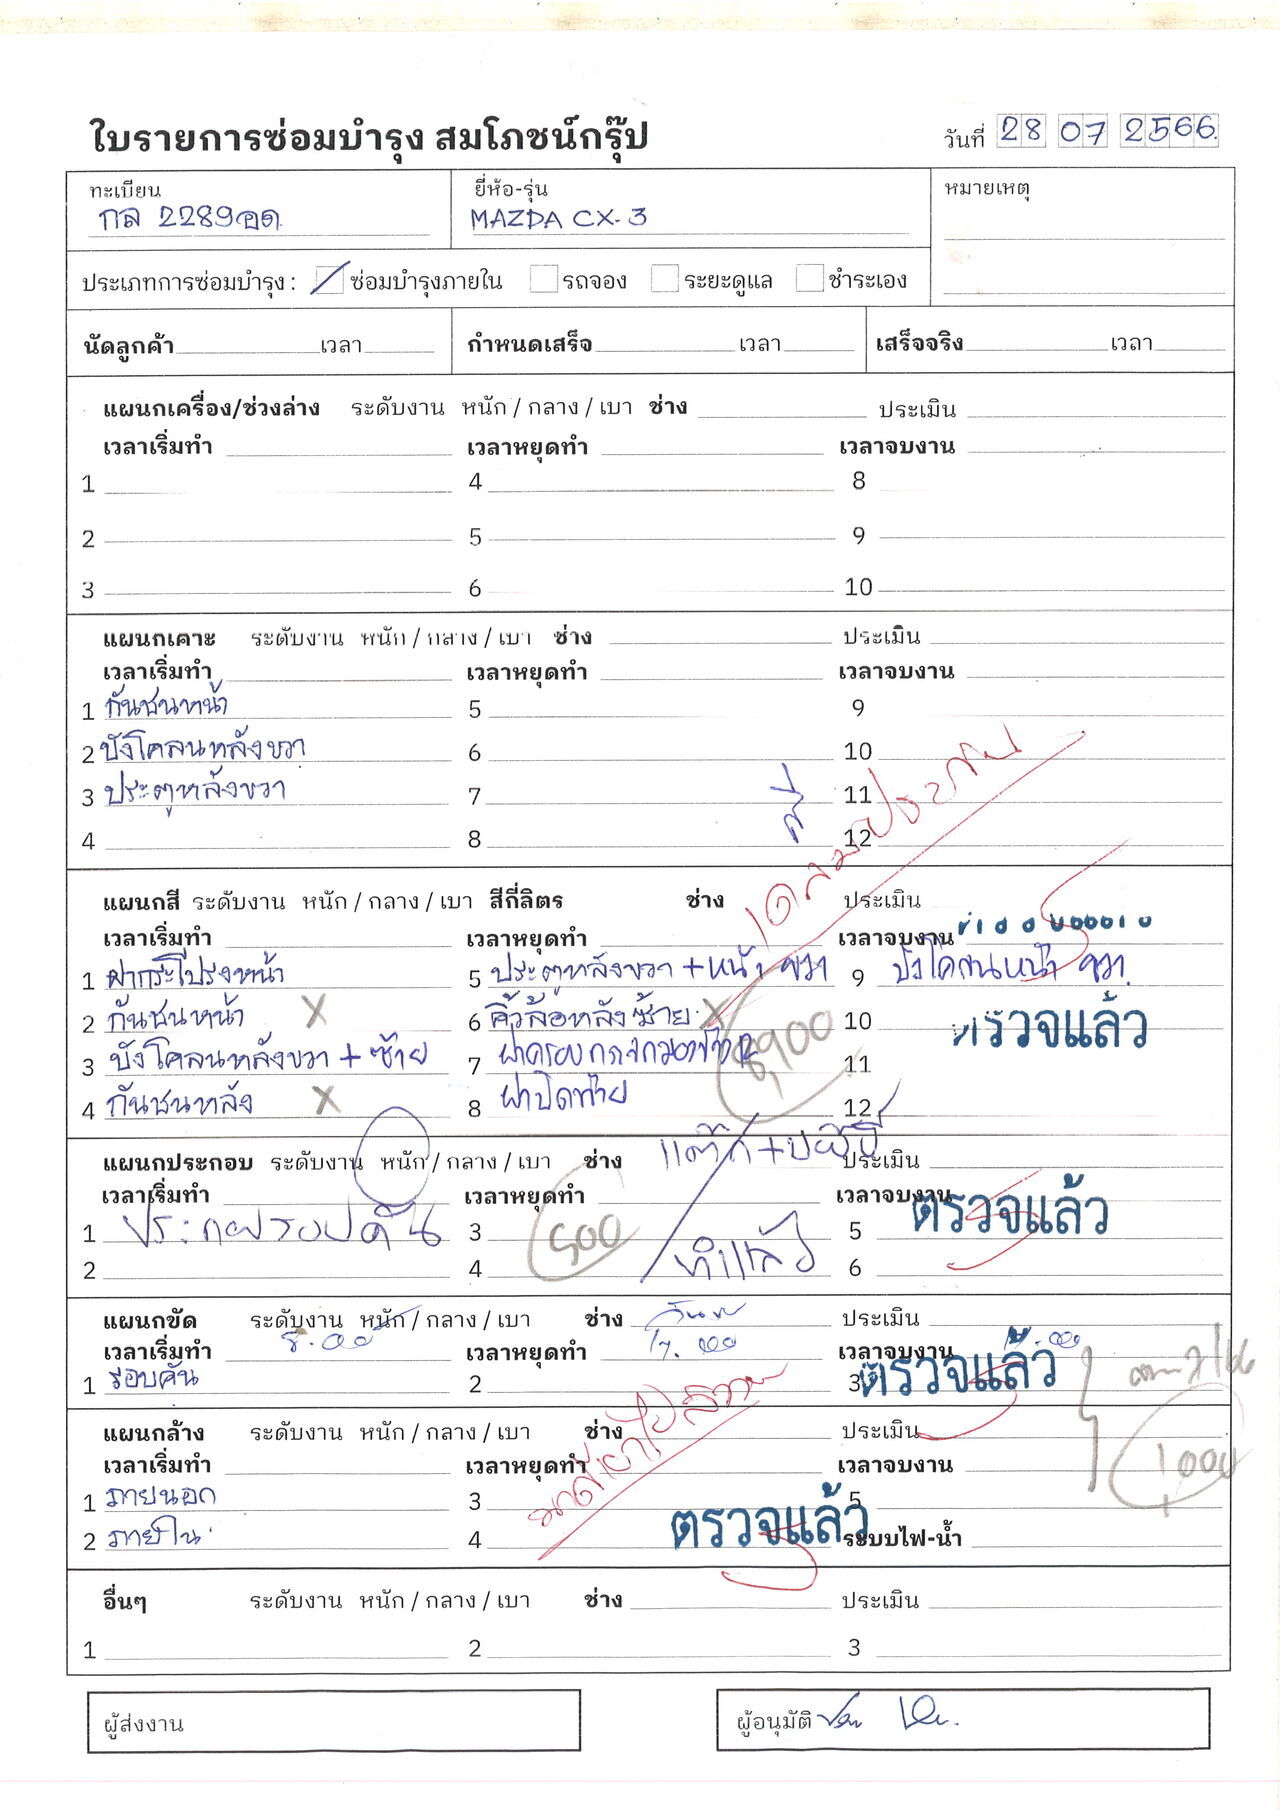 ใบรายการซ่อมบำรุง สมโภชน์กรุ๊ป วันที่ 28 07 2566
ทะเบียน ยี่ห้อ-รุ่น หมายเหตุ
กล 2289 อด. MAZDA CX-3
ประเภทการซ่อมบำรุง : ซ่อมบำรุงภายใน รถจอง ระยะดูแล ชำระเอง
นัดลูกค้า เวลา กำหนดเสร็จ เวลา เสร็จจริง เวลา
แผนกเครื่อง/ช่วงล่าง ระดับงาน หนัก / กลาง / เบา ช่าง ประเมิน
เวลาเริ่มทำ เวลาหยุดทำ เวลาจบงาน
1 4 8
2 5 9
3 6 10
แผนกเคาะ ระดับงาน หนัก / กลาง / เบา ช่าง ประเมิน
เวลาเริ่มทำ เวลาหยุดทำ เวลาจบงาน
1 กันชนหน้า 5 9
2 บังโคลนหลังขวา 6 10
3 ประตูหลังขวา 7 11
4 8 สี 12
เคลมประกัน
แผนกสี ระดับงาน หนัก / กลาง / เบา สีกี่ลิตร ช่าง ประเมิน
เวลาเริ่มทำ เวลาหยุดทำ เวลาจบงาน
1 ฝากระโปรงหน้า 5 ประตูหลังขวา + หน้า ขวา 9 บังโคลนหน้า ขวา
2 กันชนหน้า X 6 คิ้วล้อหลังซ้าย X 10 ตรวจแล้ว
3 บังโคลนหลังขวา + ซ้าย 7 11
8,900
4 กันชนหลัง X 8 ฝาปิดท้าย 12
แผนกประกอบ ระดับงาน หนัก / กลาง / เบา ช่าง ประเมิน
เวลาเริ่มทำ เวลาหยุดทำ เวลาจบงาน ตรวจแล้ว
1 ประกอบรอบคัน 3 500 ทำแล้ว 5
2 4 6
แผนกขัด ระดับงาน หนัก / กลาง / เบา ช่าง ประเมิน
เวลาเริ่มทำ 8.00 เวลาหยุดทำ 17.00 เวลาจบงาน
1 รอบคัน 2 3 ตรวจแล้ว
แผนกล้าง ระดับงาน หนัก / กลาง / เบา ช่าง ประเมิน
เวลาเริ่มทำ เวลาหยุดทำ เวลาจบงาน 1,000
1 ภายนอก 3 5
2 ภายใน 4 ตรวจแล้ว ระบบไฟ-น้ำ
อื่นๆ ระดับงาน หนัก / กลาง / เบา ช่าง ประเมิน
1 2 3
ผู้ส่งงาน ผู้อนุมัติ